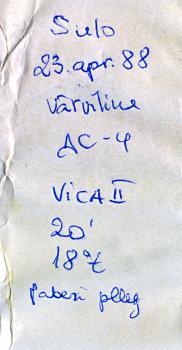 Sulo
23. apr. 88
Värviline
AC-4
VICA II
20'
18°C
Paberi pllg